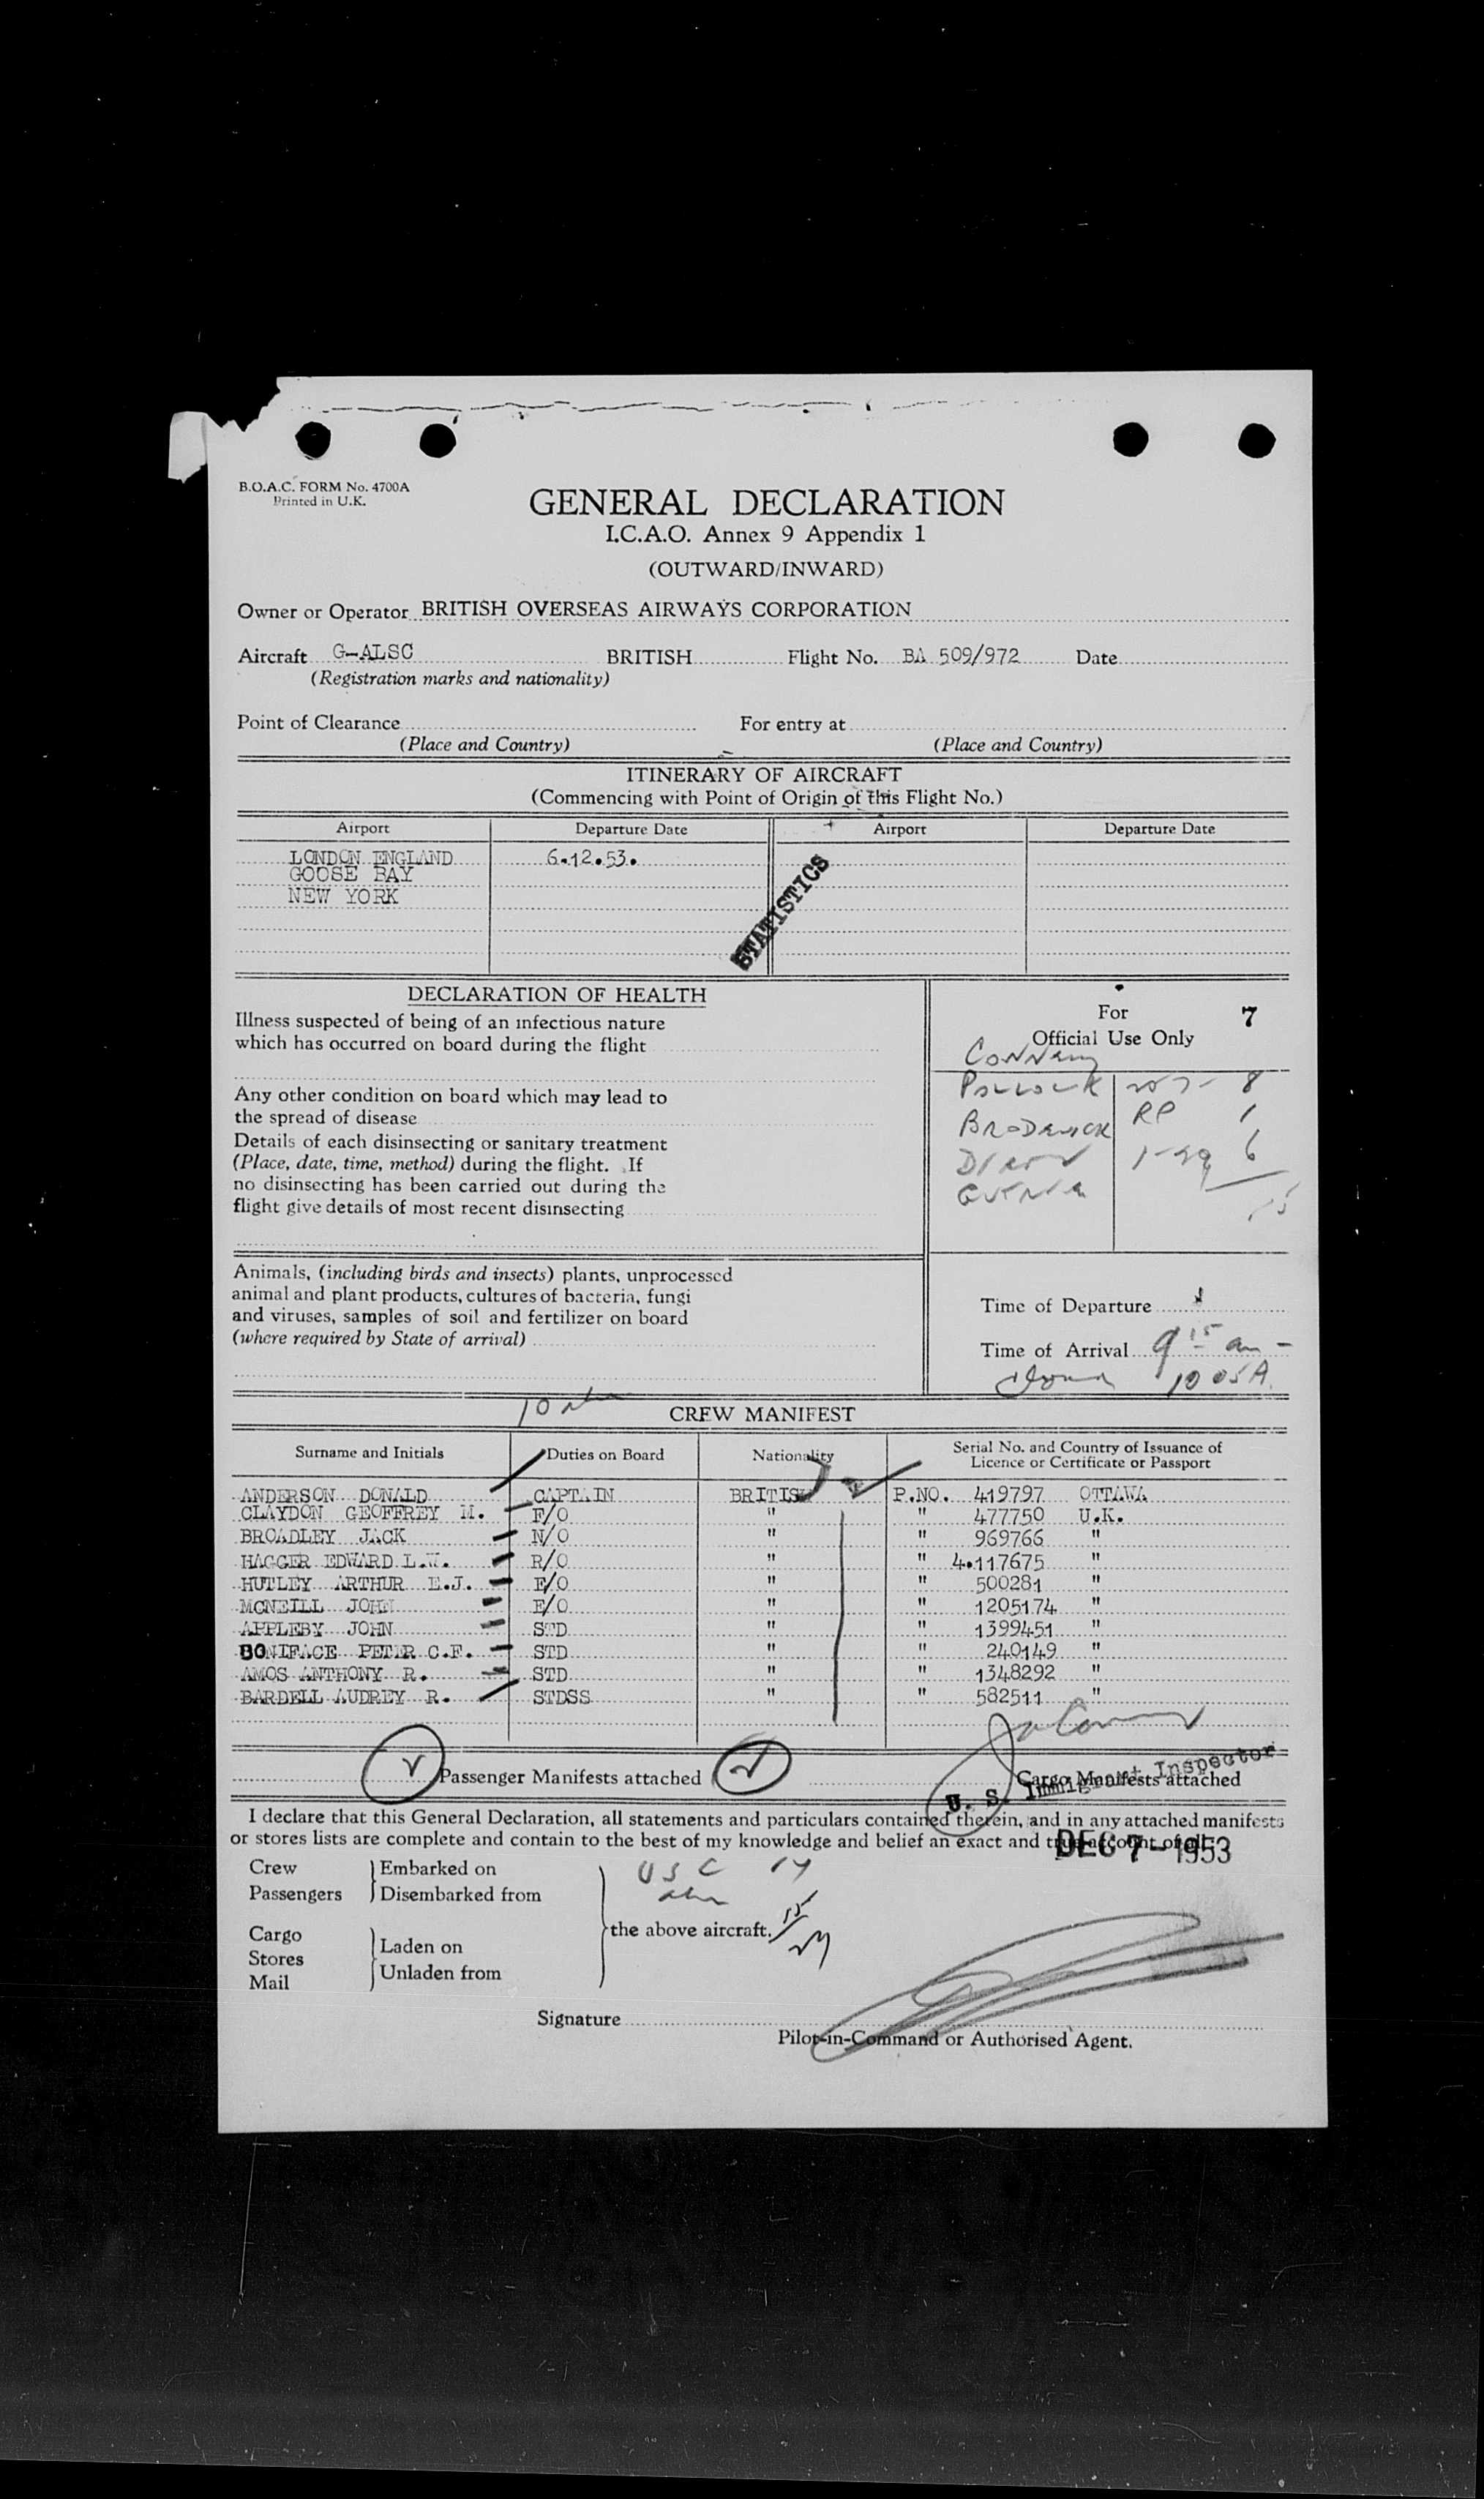 B.O.A.C. FORM No. 4700A
Printed in U.K.
GENERAL DECLARATION
I.C.A.O. Annex 9 Appendix 1
(OUTWARD/INWARD)
Owner or Operator BRITISH OVERSEAS AIRWAYS CORPORATION
Aircraft G-ALSC BRITISH Flight No. BA 509/972 Date
(Registration marks and nationality)
Point of Clearance For entry at
(Place and Country) (Place and Country)
ITINERARY OF AIRCRAFT
(Commencing with Point of Origin of this Flight No.)
Airport Departure Date Airport Departure Date
LONDON ENGLAND 6.12.53.
GOOSE BAY
NEW YORK
STATISTICS
DECLARATION OF HEALTH
Illness suspected of being of an infectious nature
which has occurred on board during the flight
Any other condition on board which may lead to
the spread of disease
Details of each disinsecting or sanitary treatment
(Place, date, time, method) during the flight. If
no disinsecting has been carried out during the
flight give details of most recent disinsecting
For 7
Official Use Only
POLLOCK 8
BRODERICK RP 1
6
15
Animals, (including birds and insects) plants, unprocessed
animal and plant products, cultures of bacteria, fungi
and viruses, samples of soil and fertilizer on board
(where required by State of arrival)
Time of Departure
Time of Arrival 9 15 am -
10 05 A
10
CREW MANIFEST
Surname and Initials Duties on Board Nationality Serial No. and Country of Issuance of
Licence or Certificate or Passport
ANDERSON DONALD CAPTAIN BRITISH P.NO. 419797 OTTAWA
CLAYDON GEOFFREY M. F/O " " 477750 U.K.
BROADLEY JACK N/O " " 969766 "
HAGGER EDWARD L.W. R/O " " 4.117675 "
HUTLEY ARTHUR E.J. E/O " " 500281 "
MCNEILL JOHN E/O " " 1205174 "
APPLEBY JOHN STD " " 1399451 "
BONIFACE PETER C.F. STD " " 240149 "
AMOS ANTHONY R. STD " " 1348292 "
BARDELL AUDREY R. STDSS " " 582511 "
Passenger Manifests attached Cargo Manifests attached
U. S. Immigrant Inspector
I declare that this General Declaration, all statements and particulars contained therein, and in any attached manifests
or stores lists are complete and contain to the best of my knowledge and belief an exact and true account of all:
DEC 7 - 1953
Crew Embarked on
Passengers Disembarked from
USC 14
15
29
the above aircraft.
Cargo
Stores Laden on
Mail Unladen from
Signature
Pilot-in-Command or Authorised Agent.